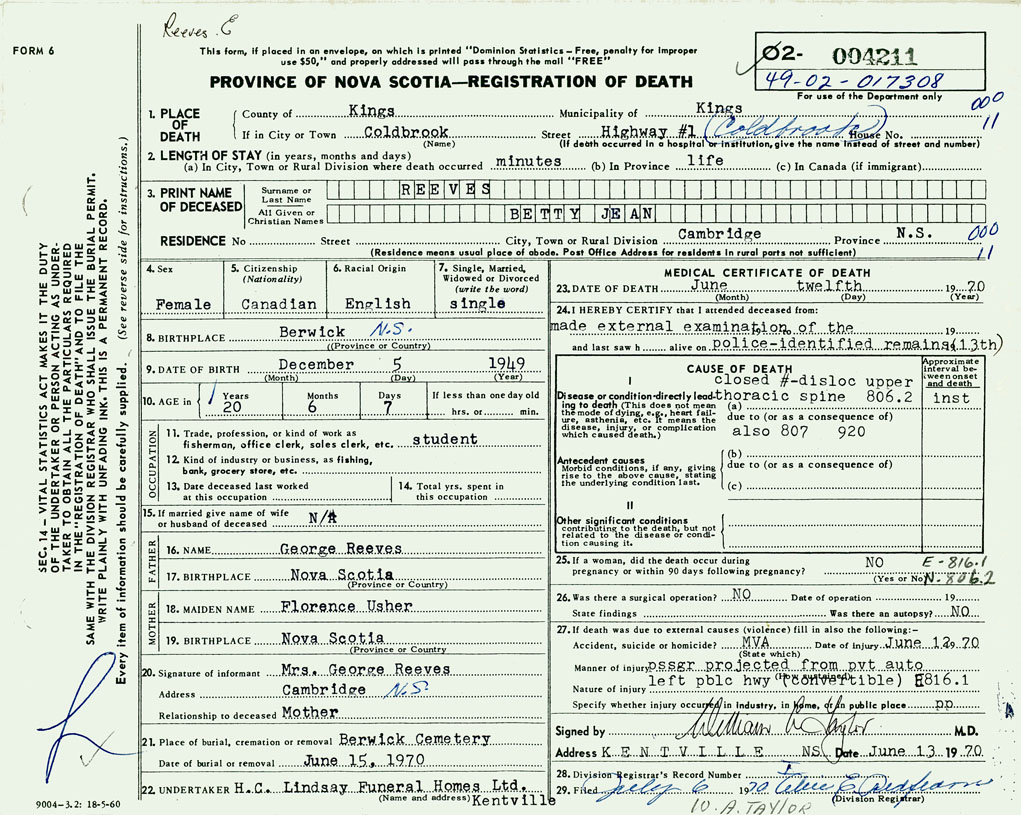 Reeves E
FORM 6
This form, if placed in an envelope, on which is printed "Dominion Statistics – Free, penalty for improper
use $50," and properly addressed will pass through the mail "FREE"
PROVINCE OF NOVA SCOTIA—REGISTRATION OF DEATH
02- 004211
49-02-017308
For use of the Department only
000
11
SEC. 14 – VITAL STATISTICS ACT MAKES IT THE DUTY
OF THE UNDERTAKER OR PERSON ACTING AS UNDER-
TAKER TO OBTAIN ALL THE PARTICULARS REQUIRED
IN THE "REGISTRATION OF DEATH" AND TO FILE THE
SAME WITH THE DIVISION REGISTRAR WHO SHALL ISSUE THE BURIAL PERMIT.
WRITE PLAINLY WITH UNFADING INK. THIS IS A PERMANENT RECORD.
Every item of information should be carefully supplied. (See reverse side for instructions.)
1. PLACE OF DEATH
County of Kings Municipality of Kings
If in City or Town Coldbrook Street Highway #1 (Coldbrook) House No.
(Name) (If death occurred in a hospital or institution, give the name instead of street and number)
2. LENGTH OF STAY (in years, months and days)
(a) In City, Town or Rural Division where death occurred minutes (b) In Province life (c) In Canada (if immigrant)
3. PRINT NAME OF DECEASED
Surname or Last Name REEVES
All Given or Christian Names BETTY JEAN
RESIDENCE No Street City, Town or Rural Division Cambridge Province N.S. 000
(Residence means usual place of abode. Post Office Address for residents in rural parts not sufficient) 11
4. Sex
Female
5. Citizenship
(Nationality)
Canadian
6. Racial Origin
English
7. Single, Married,
Widowed or Divorced
(write the word)
single
8. BIRTHPLACE Berwick N.S.
(Province or Country)
9. DATE OF BIRTH December 5 1949
(Month) (Day) (Year)
10. AGE in Years 20 Months 6 Days 7 If less than one day old
hrs. or min.
OCCUPATION
11. Trade, profession, or kind of work as
fisherman, office clerk, sales clerk, etc. student
12. Kind of industry or business, as fishing,
bank, grocery store, etc.
13. Date deceased last worked
at this occupation
14. Total yrs. spent in
this occupation
15. If married give name of wife
or husband of deceased N/A
FATHER
16. NAME George Reeves
17. BIRTHPLACE Nova Scotia
(Province or Country)
MOTHER
18. MAIDEN NAME Florence Usher
19. BIRTHPLACE Nova Scotia
(Province or Country
20. Signature of informant Mrs. George Reeves
Address Cambridge N.S.
Relationship to deceased Mother
21. Place of burial, cremation or removal Berwick Cemetery
Date of burial or removal June 15, 1970
22. UNDERTAKER H.C. Lindsay Funeral Homes Ltd.
(Name and address) Kentville
9004–3.2: 18-5-60
MEDICAL CERTIFICATE OF DEATH
23. DATE OF DEATH June twelfth 19 70
(Month) (Day) (Year)
24. I HEREBY CERTIFY that I attended deceased from:
made external examination of the 19
and last saw h alive on police-identified remains(13th)
CAUSE OF DEATH
Approximate interval between onset and death
I
closed #-disloc upper
Disease or condition directly leading to death (This does not mean the mode of dying, e.g., heart failure, asthenia, etc. It means the disease, injury, or complication which caused death.)
thoracic spine 806.2 inst
(a)
due to (or as a consequence of)
also 807 920
Antecedent causes
Morbid conditions, if any, giving
rise to the above cause, stating
the underlying condition last.
(b)
due to (or as a consequence of)
(c)
II
Other significant conditions
contributing to the death, but not
related to the disease or condi-
tion causing it.
25. If a woman, did the death occur during
pregnancy or within 90 days following pregnancy? NO
(Yes or No)
E-816.1
N-806.2
26. Was there a surgical operation? NO Date of operation 19
State findings Was there an autopsy? NO
27. If death was due to external causes (violence) fill in also the following:–
Accident, suicide or homicide? MVA Date of Injury June 12 19 70
(State which)
Manner of injury pssgr projected from pvt auto
(How sustained)
Nature of injury left pblc hwy (convertible) E816.1
Specify whether injury occurred in industry, in home, or in public place pp
Signed by William A. Taylor M.D.
Address KENTVILLE NS Date June 13 19 70
28. Division Registrar's Record Number
29. Filed July 6 1970
(Division Registrar)
W. A. TAYLOR